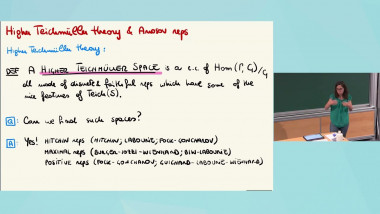 Higher Teichmüller theory & Anosov reps
Higher Teichmüller theory:
DEF A HIGHER TEICHMÜLLER SPACE is a c.c. of Hom(Γ,G)/G
all made of discrete & faithful reps which have some of the
nice features of Teich(S).
Q: Can we find such spaces?
A: Yes! HITCHIN reps (HITCHIN; LABOURIE; FOCK-GONCHAROV)
MAXIMAL reps (BURGER-IOZZI-WIENHARD; BIW-LABOURIE)
POSITIVE reps (FOCK-GONCHAROV; GUICHARD-LABOURIE-WIENHARD)